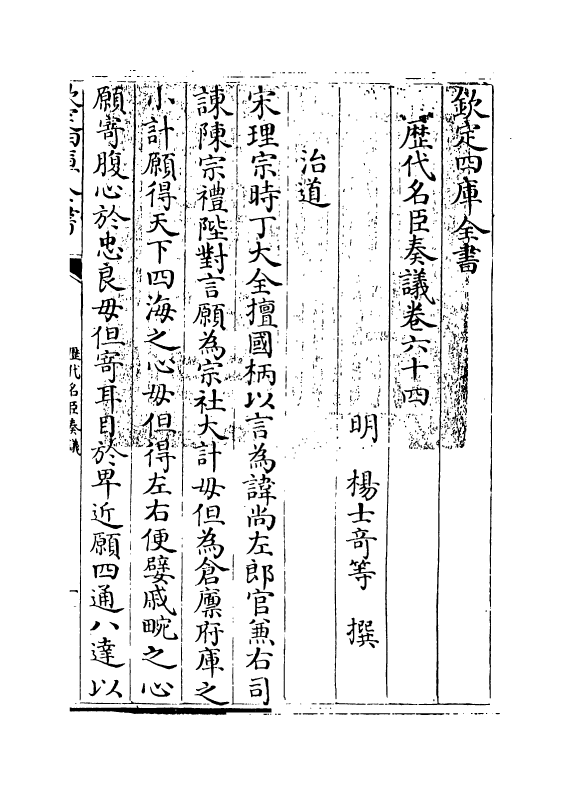 欽定四庫全書
歴代名臣奏議卷六十四
明　楊士竒等　撰
治道
宋理宗時丁大全擅國柄以言為諱尚左郎官兼右司
諫陳宗禮陛對言願為宗社大計毋但為倉廪府庫之
小計願得天下四海之心毋但得左右便嬖戚畹之心
願寄腹心於忠良毋但寄耳目於卑近願四通八達以
欽定四庫全書
歴代名臣奏議
一